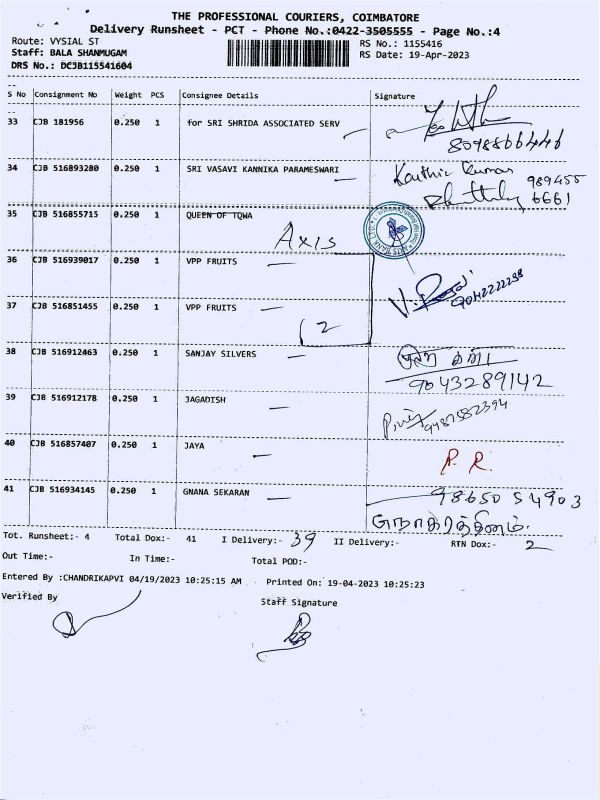 THE PROFESSIONAL COURIERS, COIMBATORE
Delivery Runsheet - PCT - Phone No.:0422-3505555 - Page No.:4
Route: VYSIAL ST
RS No.: 1155416
Staff: BALA SHANMUGAM
RS Date: 19-Apr-2023
DRS No.: DCJB115541604
S No Consignment No Weight PCS Consignee Details Signature
33 CJB 181956 0.250 1 for SRI SHRIDA ASSOCIATED SERV
8098866446
34 CJB 516893280 0.250 1 SRI VASAVI KANNIKA PARAMESWARI
Karthic Kumar
989455
6661
35 CJB 516855715 0.250 1 QUEEN OF TQWA
Axis
36 CJB 516939017 0.250 1 VPP FRUITS
9042222258
37 CJB 516851455 0.250 1 VPP FRUITS
2
38 CJB 516912463 0.250 1 SANJAY SILVERS
9043289142
39 CJB 516912178 0.250 1 JAGADISH
9487582394
40 CJB 516857407 0.250 1 JAYA
P. R.
41 CJB 516934145 0.250 1 GNANA SEKARAN
98650 54903
Tot. Runsheet:- 4 Total Dox:- 41 I Delivery:- 39 II Delivery:- RTN Dox:- 2
Out Time:- In Time:- Total POD:-
Entered By :CHANDRIKAPVI 04/19/2023 10:25:15 AM - Printed On: 19-04-2023 10:25:23
Verified By Staff Signature